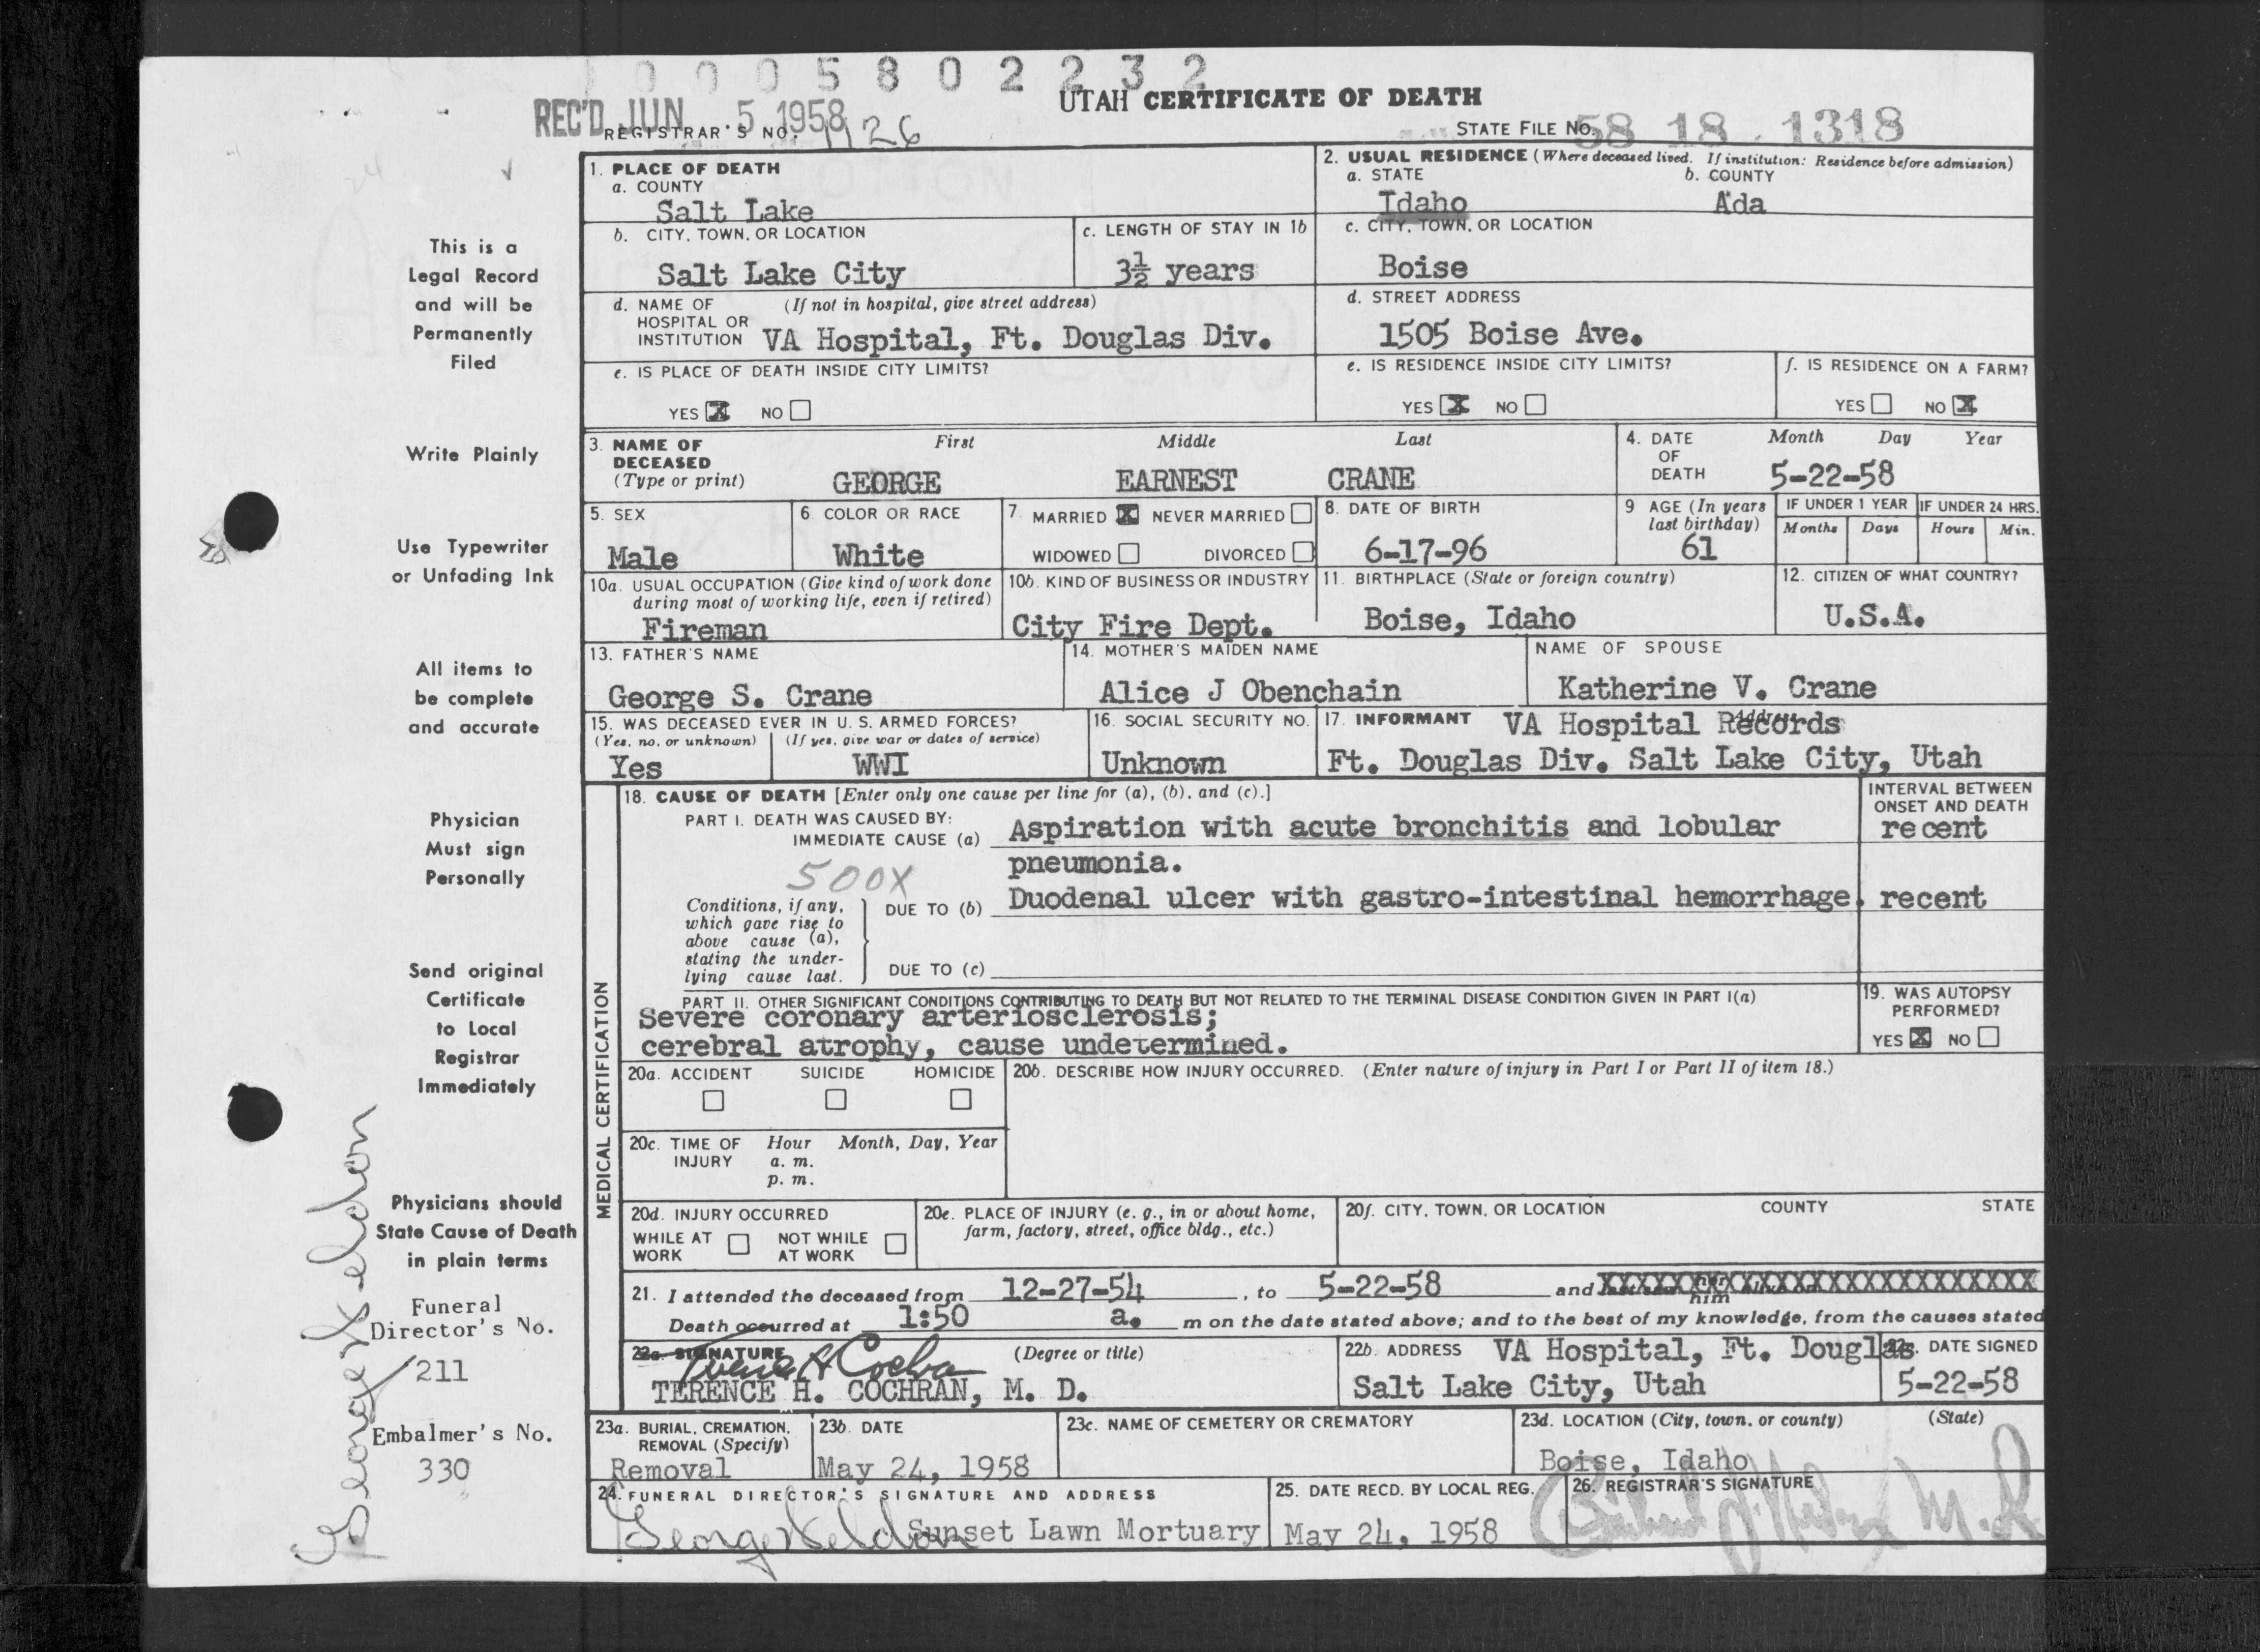 0 0 0 5 8 0 2 2 3 2
UTAH CERTIFICATE OF DEATH
REC'D JUN 5 1958
REGISTRAR'S NO. 1126
STATE FILE No. 58 18 1318
This is a
Legal Record
and will be
Permanently
Filed
Write Plainly
Use Typewriter
or Unfading Ink
All items to
be complete
and accurate
Physician
Must sign
Personally
Send original
Certificate
to Local
Registrar
Immediately
Physicians should
State Cause of Death
in plain terms
Funeral
Director's No.
211
Embalmer's No.
330
1. PLACE OF DEATH
a. COUNTY
Salt Lake
2. USUAL RESIDENCE (Where deceased lived. If institution: Residence before admission)
a. STATE b. COUNTY
Idaho Ada
b. CITY, TOWN, OR LOCATION
Salt Lake City
c. LENGTH OF STAY IN 1b
3½ years
c. CITY, TOWN, OR LOCATION
Boise
d. NAME OF (If not in hospital, give street address)
HOSPITAL OR
INSTITUTION VA Hospital, Ft. Douglas Div.
d. STREET ADDRESS
1505 Boise Ave.
e. IS PLACE OF DEATH INSIDE CITY LIMITS?
YES X NO
e. IS RESIDENCE INSIDE CITY LIMITS?
YES X NO
f. IS RESIDENCE ON A FARM?
YES NO X
3. NAME OF First Middle Last
DECEASED
(Type or print) GEORGE EARNEST CRANE
4. DATE Month Day Year
OF
DEATH 5-22-58
5. SEX
Male
6. COLOR OR RACE
White
7. MARRIED X NEVER MARRIED
WIDOWED DIVORCED
8. DATE OF BIRTH
6-17-96
9 AGE (In years
last birthday)
61
IF UNDER 1 YEAR IF UNDER 24 HRS.
Months Days Hours Min.
10a. USUAL OCCUPATION (Give kind of work done
during most of working life, even if retired)
Fireman
10b. KIND OF BUSINESS OR INDUSTRY
City Fire Dept.
11. BIRTHPLACE (State or foreign country)
Boise, Idaho
12. CITIZEN OF WHAT COUNTRY?
U.S.A.
13. FATHER'S NAME
George S. Crane
14. MOTHER'S MAIDEN NAME
Alice J Obenchain
NAME OF SPOUSE
Katherine V. Crane
15. WAS DECEASED EVER IN U. S. ARMED FORCES?
(Yes, no, or unknown) (If yes, give war or dates of service)
Yes WWI
16. SOCIAL SECURITY NO.
Unknown
17. INFORMANT Address
VA Hospital Records
Ft. Douglas Div. Salt Lake City, Utah
MEDICAL CERTIFICATION
18. CAUSE OF DEATH [Enter only one cause per line for (a), (b), and (c).]
INTERVAL BETWEEN
ONSET AND DEATH
PART I. DEATH WAS CAUSED BY:
IMMEDIATE CAUSE (a) Aspiration with acute bronchitis and lobular recent
pneumonia.
500X
Conditions, if any,
which gave rise to
above cause (a),
stating the under-
lying cause last.
DUE TO (b) Duodenal ulcer with gastro-intestinal hemorrhage. recent
DUE TO (c)
PART II. OTHER SIGNIFICANT CONDITIONS CONTRIBUTING TO DEATH BUT NOT RELATED TO THE TERMINAL DISEASE CONDITION GIVEN IN PART I(a)
Severe coronary arteriosclerosis;
cerebral atrophy, cause undetermined.
19. WAS AUTOPSY
PERFORMED?
YES X NO
20a. ACCIDENT SUICIDE HOMICIDE
20b. DESCRIBE HOW INJURY OCCURRED. (Enter nature of injury in Part I or Part II of item 18.)
20c. TIME OF Hour Month, Day, Year
INJURY a. m.
p. m.
20d. INJURY OCCURRED
WHILE AT NOT WHILE
WORK AT WORK
20e. PLACE OF INJURY (e. g., in or about home,
farm, factory, street, office bldg., etc.)
20f. CITY, TOWN, OR LOCATION COUNTY STATE
21. I attended the deceased from 12-27-54, to 5-22-58 and XXXXXXXXXXXXXXXXXXXXXXXXX
him
Death occurred at 1:50 a. m on the date stated above; and to the best of my knowledge, from the causes stated
22a. SIGNATURE (Degree or title)
Terence H Cochran
TERENCE H. COCHRAN, M. D.
22b. ADDRESS VA Hospital, Ft. Douglas
Salt Lake City, Utah
22c. DATE SIGNED
5-22-58
23a. BURIAL, CREMATION,
REMOVAL (Specify)
Removal
23b. DATE
May 24, 1958
23c. NAME OF CEMETERY OR CREMATORY
23d. LOCATION (City, town, or county) (State)
Boise, Idaho
24. FUNERAL DIRECTOR'S SIGNATURE AND ADDRESS
Sunset Lawn Mortuary
25. DATE RECD. BY LOCAL REG.
May 24, 1958
26. REGISTRAR'S SIGNATURE